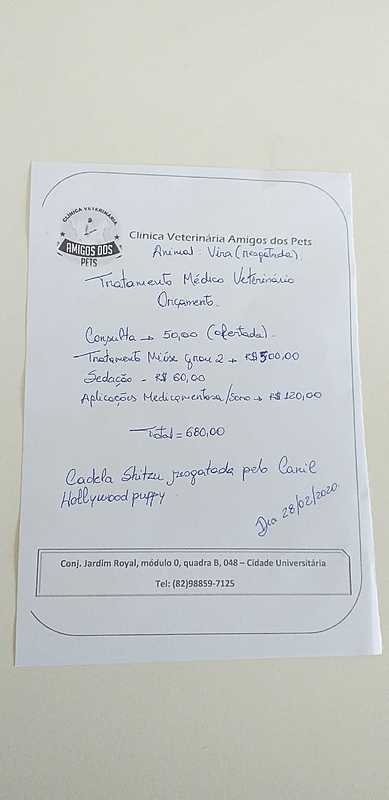 CLÍNICA VETERINÁRIA
AMIGOS DOS
PETS
Clínica Veterinária Amigos dos Pets
Animal: Vira (resgatada)
Tratamento Médico Veterinário
Orçamento.
Consulta → 50,00 (ofertada).
Tratamento Miíse grau 2 → R$ 500,00
Sedação - R$ 60,00
Aplicações Medicamentosa/Soro → R$ 120,00
Total = 680,00
Cadela Shitzu resgatada pelo Canil
Hollywood puppy.
Dia 28/02/2020.
Conj. Jardim Royal, módulo 0, quadra B, 048 – Cidade Universitária
Tel: (82)98859-7125